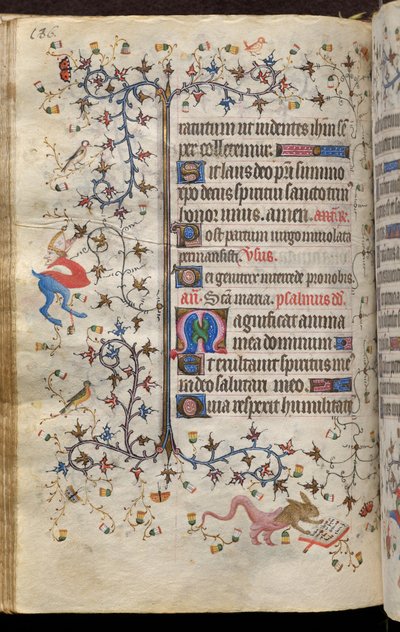 186.
ramitum ut videntes ihm se
per colletemur.
Sit laus deo patri summo
xpo decus spiritui sancto tim
honor unus. amen. ant.
Post partum virgo inviolata
permansisti. vsus.
Dei genitrix intercede pro nobis
an. Sca maria. psalmus dd.
Magnificat anima
mea dominum
Et exultavit spiritus me
in deo salutari meo.
Quia respexit humilitati